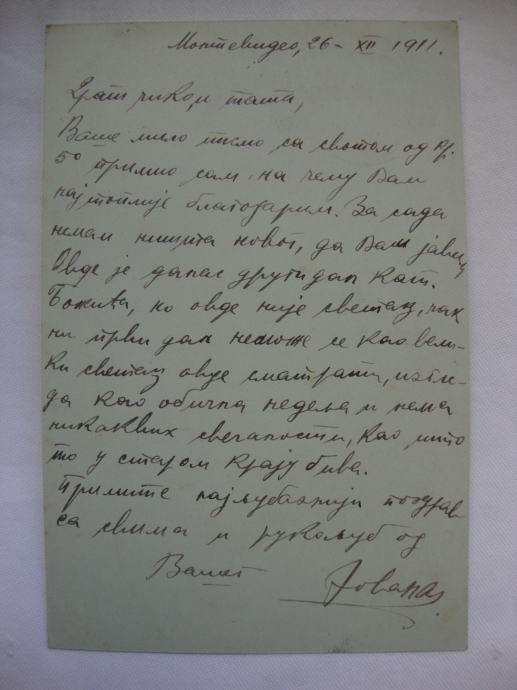 Монтевидео, 26- XII 1911.
Драги чико и тата,
Ваше мило писмо са свотом од кр.
50 примио сам на чему Вам
најтоплије благодарим. За сада
немам ништа новог, да Вам јавим,
Овде је данас други дан кат.
Божића, но овде није светац, чак
ни први дан неможе се као вели-
ки светац овде сматрати, изгле-
да као обична недеља и нема
никаквих свечаности, као што
то у старом крају бива.
Примите најљубазнији поздрав
са свима и рукољуб од
Вашег Јована